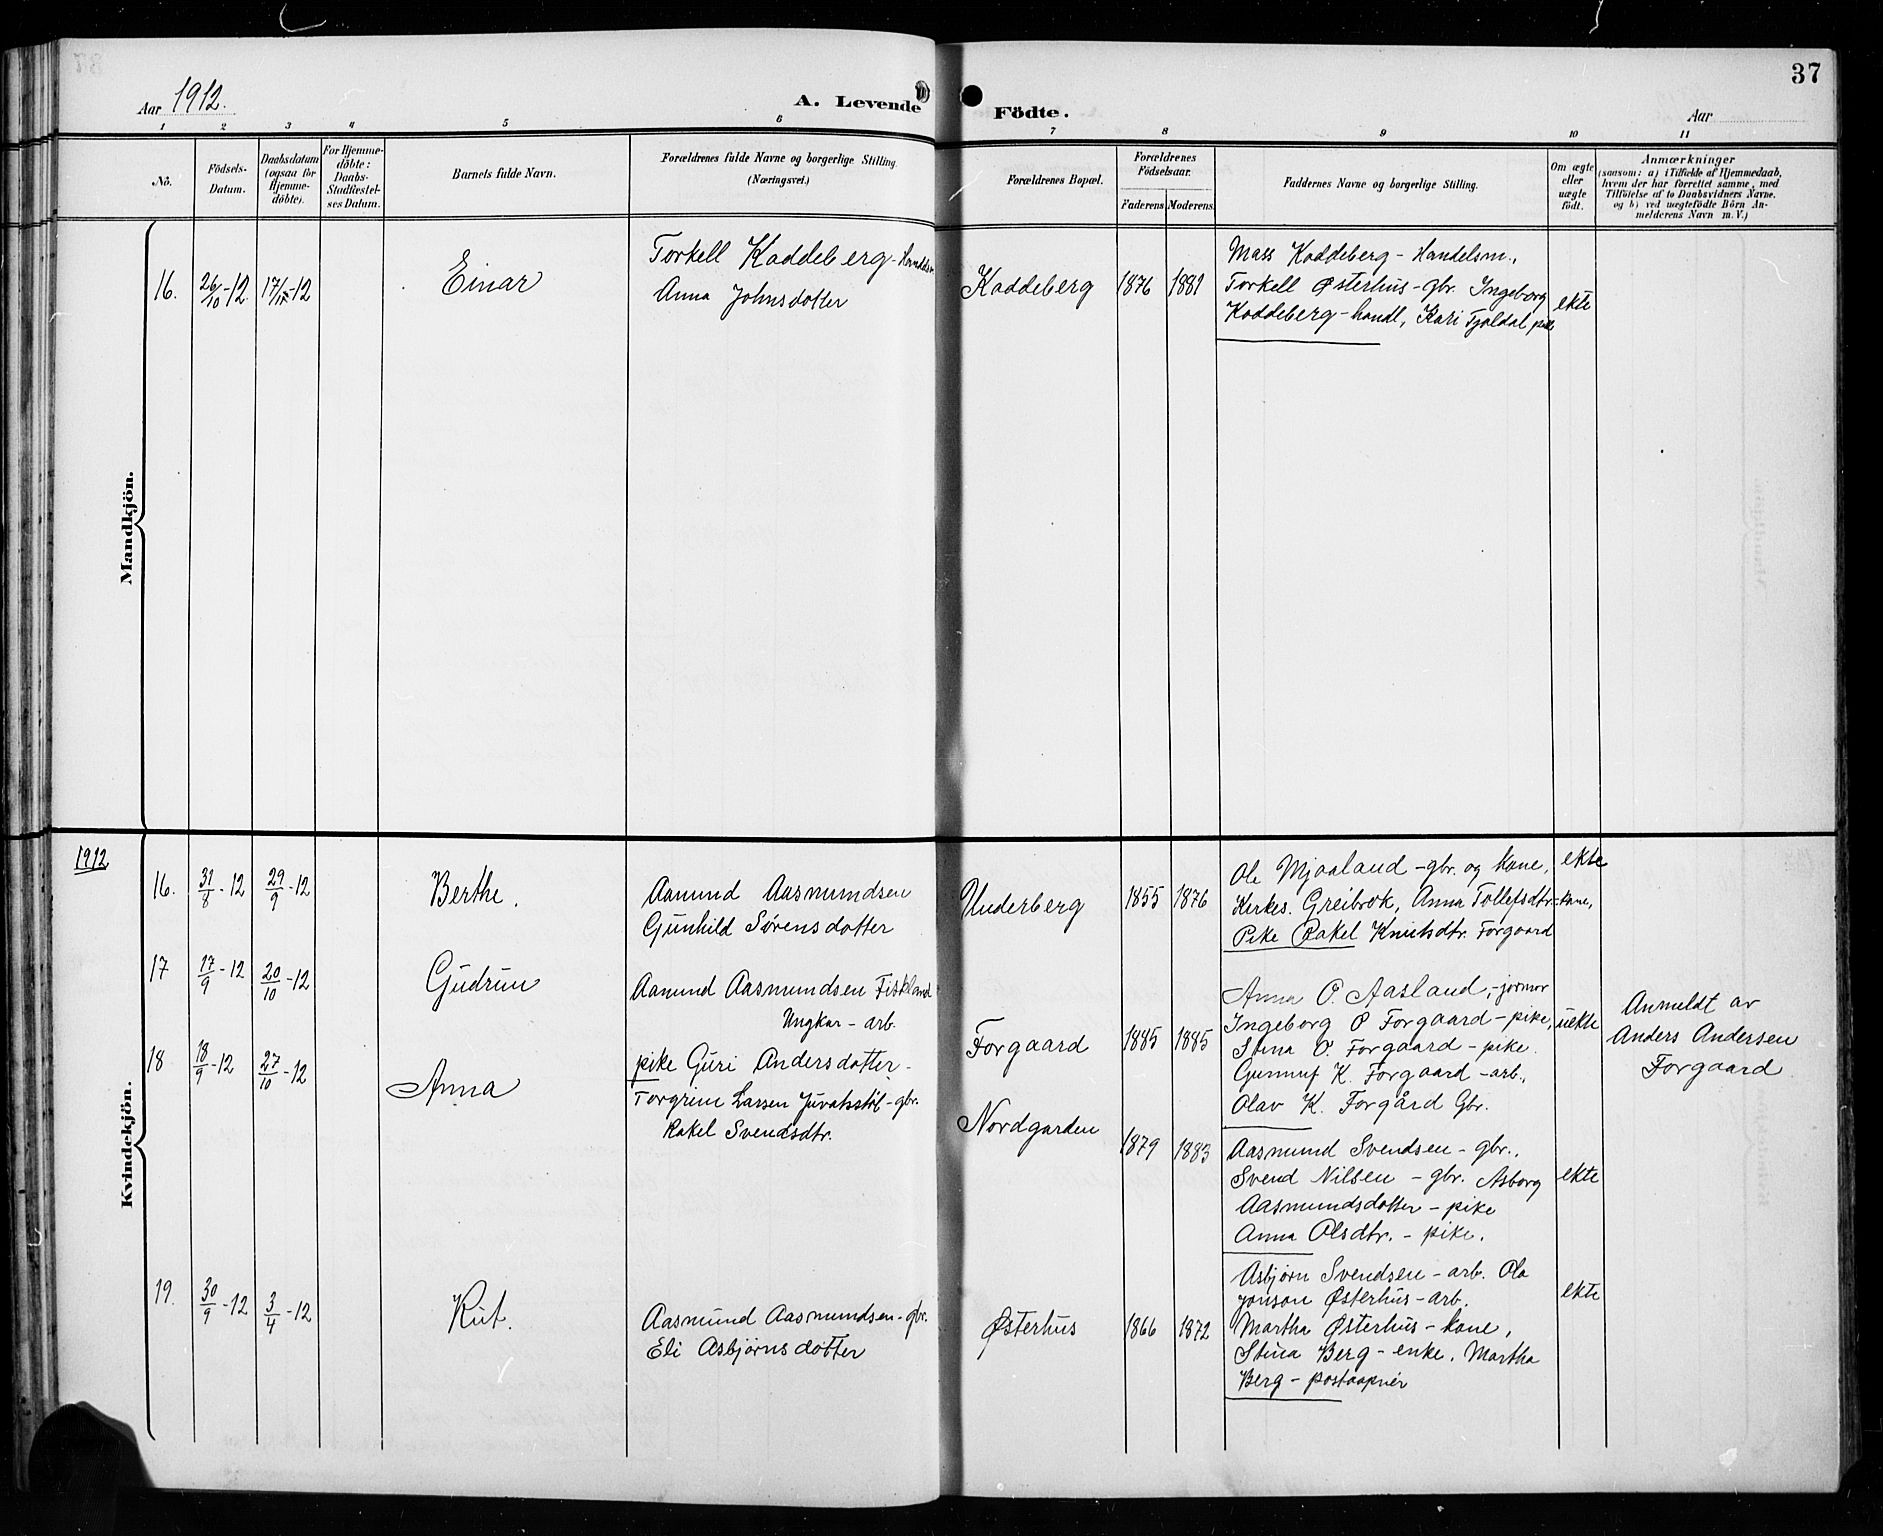 37
Aar 1912.
A. Levende Födte.
Aar
1 2 3 4 5 6 7 8 9 10 11
No.
Födsels-
Datum.
Daabsdatum
(ogsaa för
Hjemme-
döbte).
For Hjemme-
döbte:
Daabs-
Stadfæstel-
ses Datum.
Barnets fulde Navn.
Forældrenes fulde Navne og borgerlige Stilling.
(Næringsvei.)
Forældrenes Bopæl.
Forældrenes
Födselsaar.
Faderens. Moderens.
Faddernes Navne og borgerlige Stilling.
Om ægte
eller
uægte
födt.
Anmærkninger
(saasom: a) i Tilfælde af Hjemmedaab,
hvem der har forrettet samme, med
Tilföielse af to Daabsvidners Navne.
og b) ved uægtefödte Börn An-
melderens Navn m. V.)
Mandkjön.
16. 26/10-12 17/11-12 Einar
Torkell Kaddeberg - Handelsm
Anna Johnsdotter
Kaddeberg 1876 1881
Mass Kaddeberg - Handelsm.,
Torkell Østerhus - gbr. Ingeborg
Kaddeberg - handl, Kari Tjaldal pike
ekte
Kvindekjön.
1912
16. 31/8-12 29/9-12 Berthe.
Aamund Aasmundsen
Gunhild Sørensdotter
Underberg 1855 1876
Ole Mjaaland - gbr. og kone,
Kirkes. Greibrok, Anna Tollefsdtr - kone,
Pike Rakel Knutsdtr. Forgaard
ekte
17 17/9-12 20/10-12 Gudrun
Aamund Aasmundsen Fiskland
Ungkar - arb.
pike Guri Andersdotter -
Forgaard 1885 1885
Anna O. Aasland, - jormor
Ingeborg O Forgaard - pike,
Stina O. Forgaard - pike.
Gunnuf K. Forgaard - arb.,
Olav K. Forgård Gbr.
uekte
Anmeldt av
Anders Andersen
Forgaard
18 18/9-12 27/10-12 Anna
Torgrim Larsen Juvatsstöl - gbr.
Rakel Svendsdtr.
Nordgarden 1879 1883
Aasmund Svendsen - gbr.,
Svend Nilsen - gbr. Asborg
Aasmundsdotter - pike
Anna Olsdtr. - pike.
ekte
19. 30/9-12 3/4-12 Rut.
Aasmund Aasmundsen - gbr.
Eli Asbjørnsdotter
Østerhus 1866 1872
Asbjørn Svendsen - arb. Ola
Jonson Østerhus - arb.
Martha Østerhus - kone,
Stina Berg - enke, Martha
Berg - postaapner
ekte